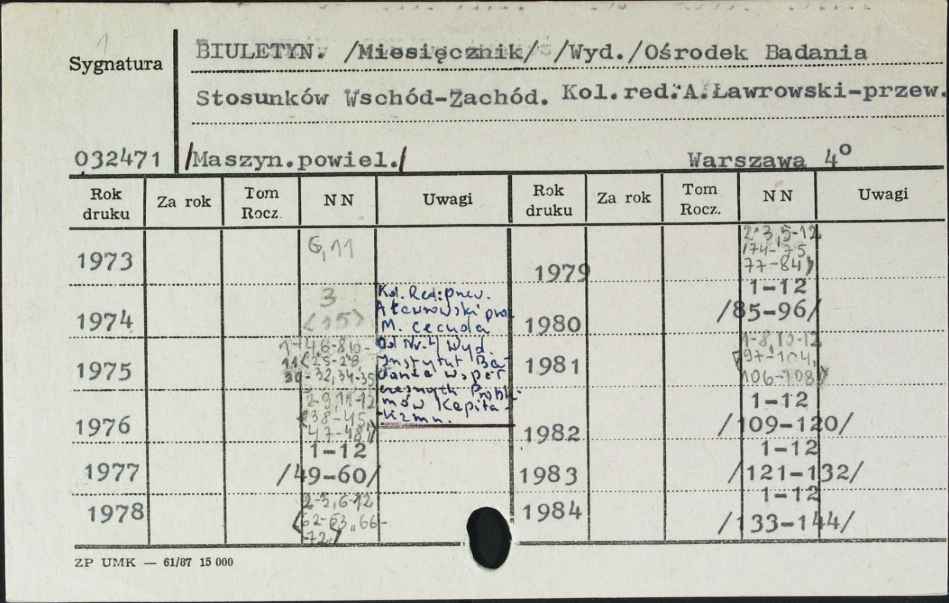 1
BIULETYN. /Miesięcznik/ /Wyd./Ośrodek Badania
Sygnatura
Stosunków Wschód-Zachód. Kol.red.:A.Ławrowski-przew.
032471 /Maszyn.powiel./ Warszawa 4°
Rok druku Za rok Tom Rocz. NN Uwagi Rok druku Za rok Tom Rocz. NN Uwagi
1973 6,11
1979 2-3,5-12 /74-75, 77-84/
1974 3 <15>
Kol. Red: przew.
A Ławrowski
M. Cecuda
od Nr. 4 Wyd.
Instytut Ba-
dania Współ
czesnych Probl-
mów Kapita-
lizmu.
1980 1-12 /85-96/
1975 32,34-35
1981 1-8,10-12 /97-104, 106-108/
1976 <38-45, 47-48/
1982 1-12 /109-120/
1977 1-12 /49-60/
1983 1-12 /121-132/
1978 2-3,6-12 <62-63,66-72/
1984 1-12 /133-144/
ZP UMK — 61/87 15 000